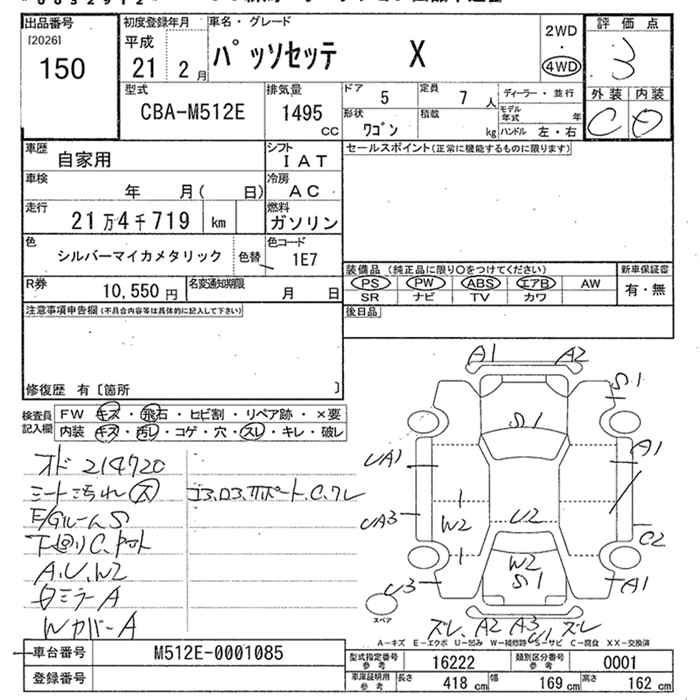 出品番号
[2026]
150
初度登録年月
平成
21 2 月
車名・グレード
パッソセッテ X
2WD
・
4WD
評価点
3
外装 内装
C D
型式
CBA-M512E
排気量
1495 CC
ドア 5
定員 7 人
形状 ワゴン
積載 kg
ディーラー・並行
モデル年式 年
ハンドル 左・右
車歴
自家用
シフト
IAT
車検
年 月( 日)
冷房
AC
走行
21万4千719 km
燃料
ガソリン
色
シルバーマイカメタリック
色替
色コード
1E7
R券
10,550 円
名変通知期限
月 日
セールスポイント(正常に機能するものに限ります)
装備品 (純正品に限り○をつけてください)
新車保証書
PS PW ABS エアB AW
有・無
SR ナビ TV カワ
後日品
注意事項申告欄(不具合内容等は具体的に記入して下さい)
修復歴 有 [箇所 ]
検査員記入欄
FW キズ・飛石・ヒビ割・リペア跡・×要
内装 キズ・汚れ・コゲ・穴・スレ・キレ・破レ
オド 214720
シート汚れ 大
コラ、ロス、サポートC、クレ
F/GルームS
下廻りC、
A、U、W2
ミラーA
WカバーA
A1 A2
S1
S1
UA1
A1
UA3
W2
U2
C2
W2
S1
U3
A1
スペア
ズレ、A2 A3 U1、ズレ
A−キズ E−エクボ U−凹み W−補修跡 S−サビ C−腐食 XX−交換済
車台番号
M512E-0001085
登録番号
型式指定番号 参考
16222
類別区分番号 参考
0001
車庫証明用 参考
長さ 418 cm
幅 169 cm
高さ 162 cm